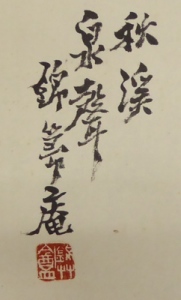 秋溪
泉聲
錦節庵